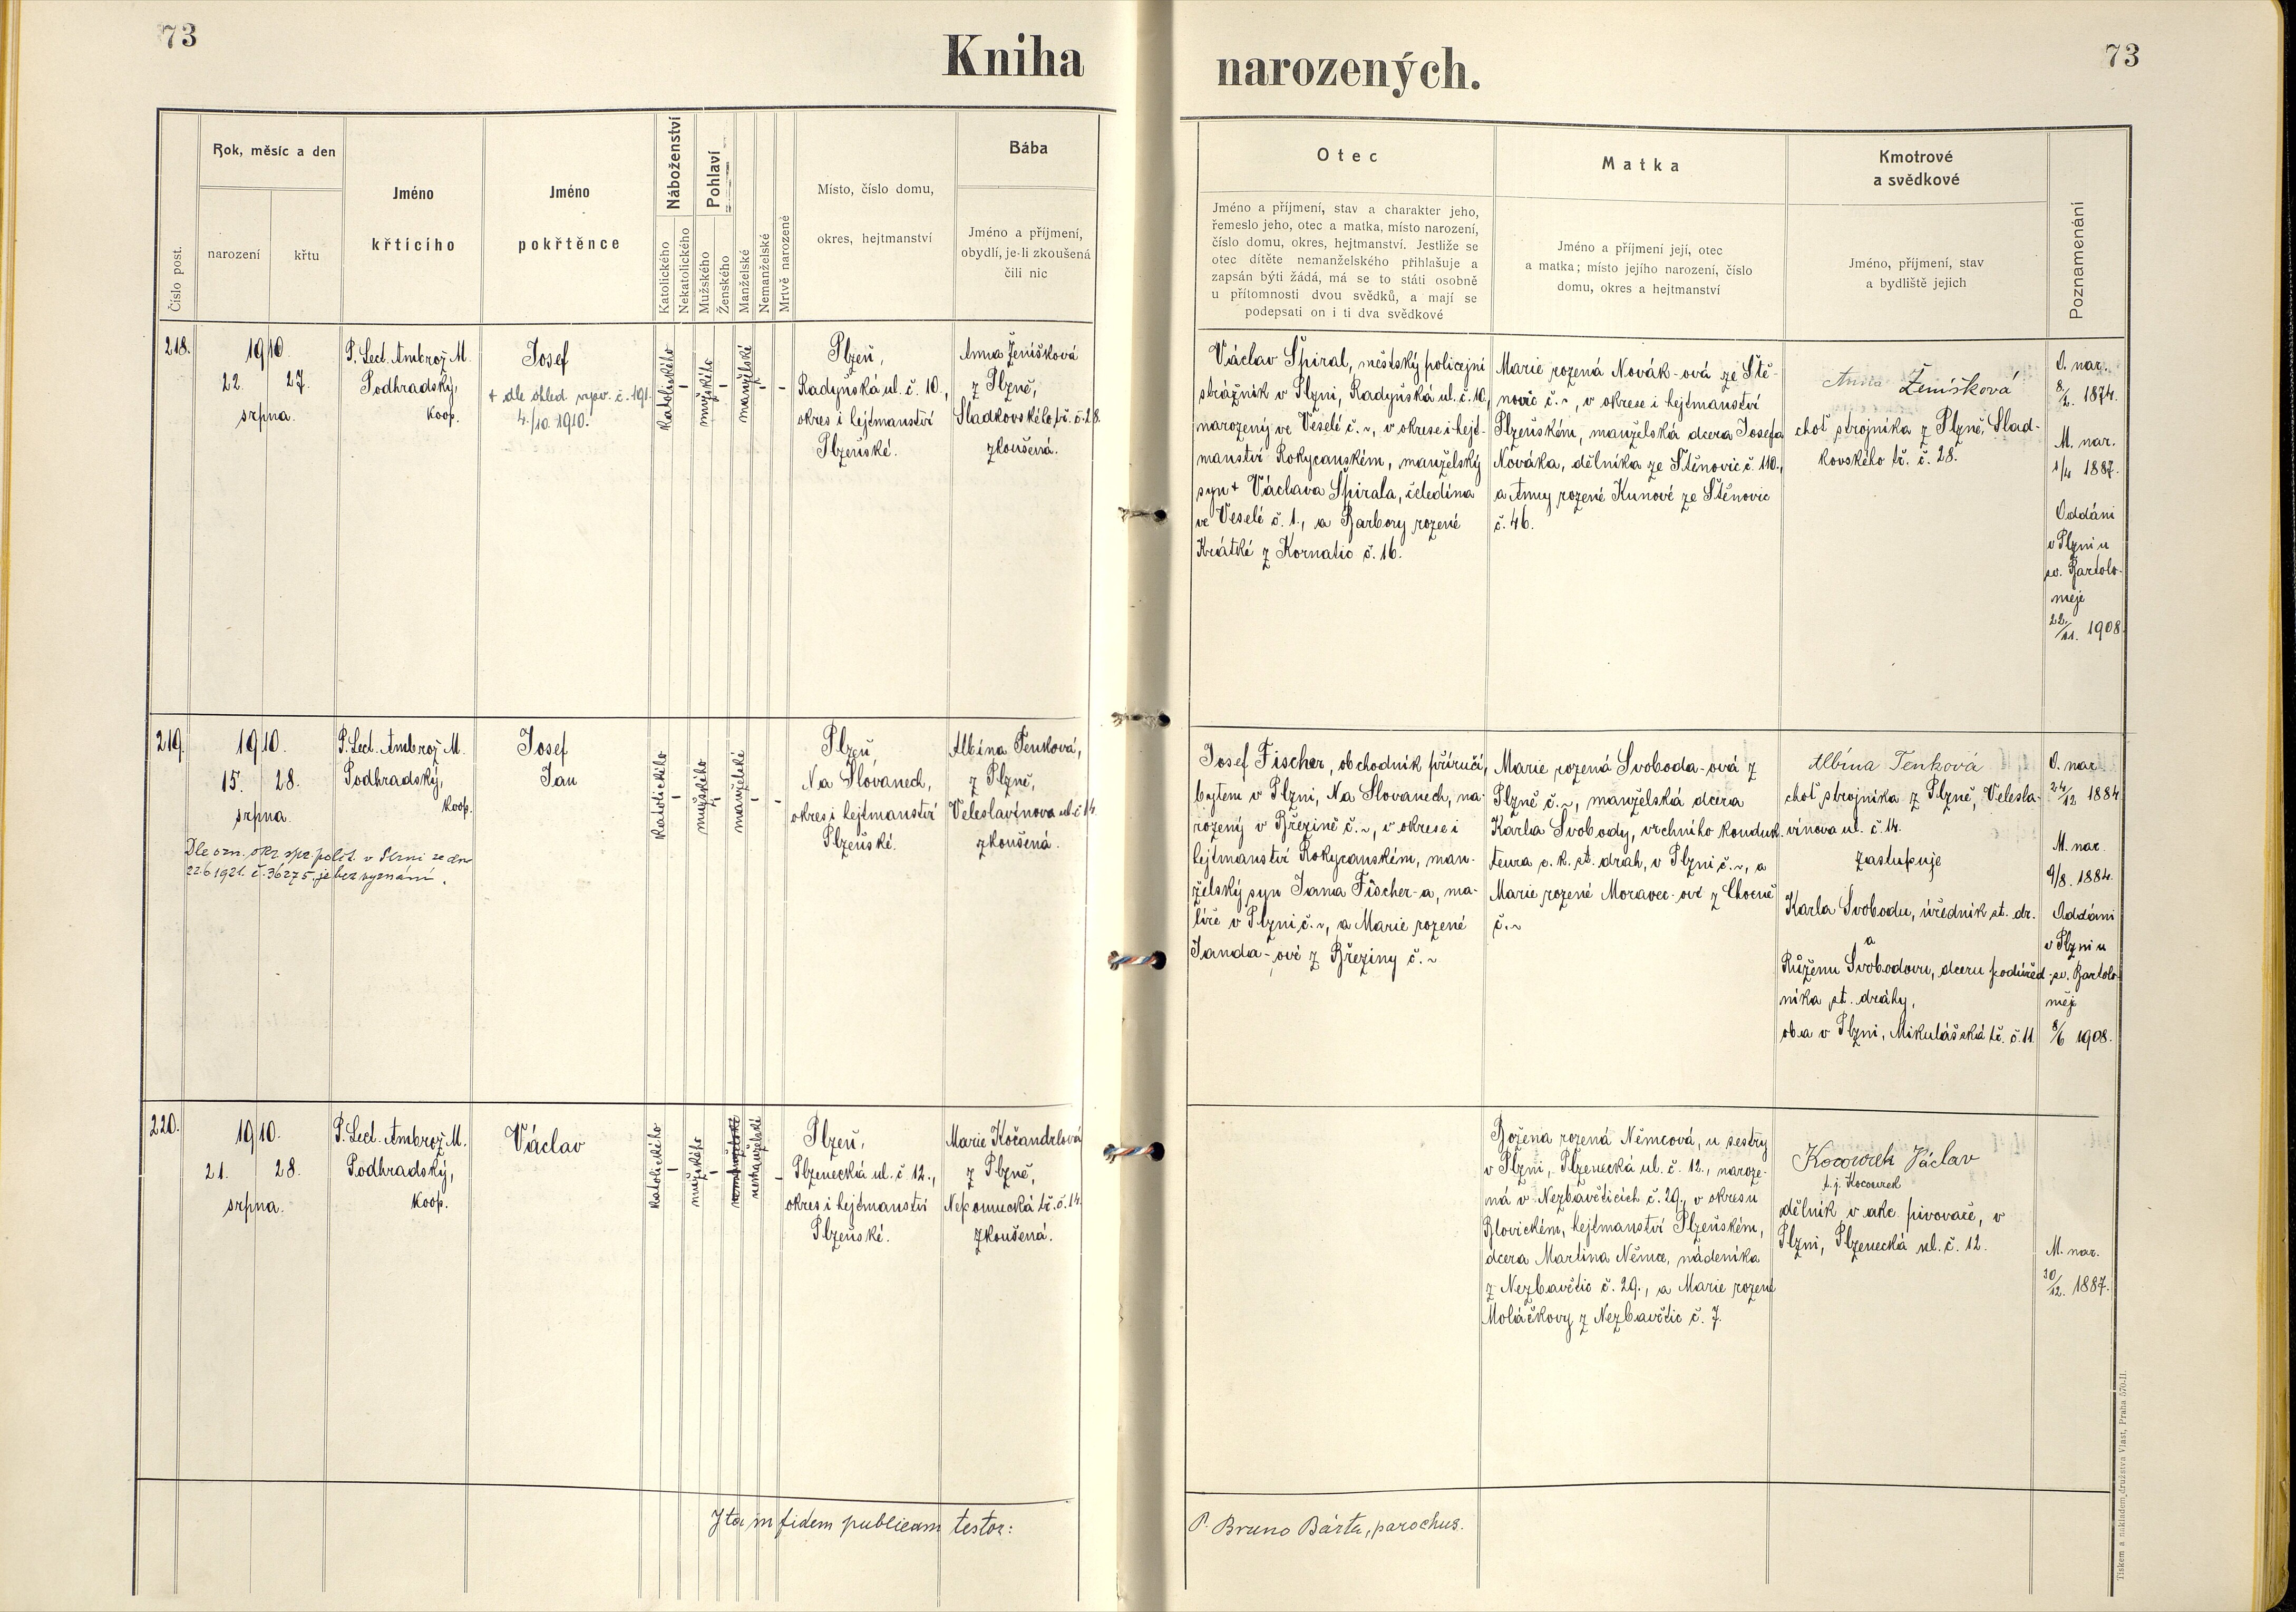 73
Kniha
narozených.
73
Číslo post.
Rok, měsíc a den
narození
křtu
Jméno
křtícího
Jméno
pokřtěnce
Náboženství
Katolického
Nekatolického
Pohlaví
Mužského
Ženského
Manželské
Nemanželské
Mrtvě narozené
Místo, číslo domu,
okres, hejtmanství
Bába
Jméno a příjmení,
obydlí, je-li zkoušená
čili nic
Otec
Jméno a příjmení, stav a charakter jeho,
řemeslo jeho, otec a matka, místo narození,
číslo domu, okres, hejtmanství. Jestliže se
otec dítěte nemanželského přihlašuje a
zapsán býti žádá, má se to státi osobně
u přítomnosti dvou svědků, a mají se
podepsati on i ti dva svědkové
Matka
Jméno a příjmení její, otec
a matka; místo jejího narození, číslo
domu, okres a hejtmanství
Kmotrové
a svědkové
Jméno, příjmení, stav
a bydliště jejich
Poznamenání
218.
1910.
22. 27.
srpna.
P. Lect. Ambrož M.
Podhradský,
koop.
Josef
+ dle ohled. vysv. č. 191.
4./10. 1910.
katolického
-
mužského
-
manželské
-
-
Plzeň,
Radyňská ul. č. 10.,
okres i hejtmanství
Plzeňské.
Anna Ženíšková
z Plzně,
Sladkovského tř. č. 28.
zkoušená.
Václav Špiral, městský policejní
strážník v Plzni, Radyňská ul. č. 10,
narozený ve Veselé č. ~, v okrese i hejt-
manství Rokycanském, manželský
syn + Václava Špirala, čeledína
ve Veselé č. 1., a Barbory rozené
Krátké z Kornatic č. 16.
Marie rozená Novák-ová ze Ště-
novic č. ~, v okrese i hejtmanství
Plzeňském, manželská dcera Josefa
Nováka, dělníka ze Štěnovic č. 110.,
a Anny rozené Kunové ze Štěnovic
č. 46.
Anna Ženíšková
choť strojníka z Plzně, Slad-
kovského tř. č. 28.
O. nar.
8/2. 1874.
M. nar.
1/4 1887.
Oddáni
v Plzni u
sv. Bartolo-
měje
22./11. 1908.
219.
1910.
15. 28.
srpna.
Dle ozn. okr. spr. polit. v Plzni ze dne
22.6 1921. č. 36275. je bez vyznání.
P. Lect. Ambrož M.
Podhradský,
koop.
Josef
Jan
katolického
-
mužského
-
manželské
-
-
Plzeň,
Na Slovanech,
okres i hejtmanství
Plzeňské.
Albína Tenková,
z Plzně,
Veleslavínova ul. č. 14
zkoušená.
Josef Fischer, obchodník příručí,
bytem v Plzni, Na Slovanech, na-
rozený v Březině č. ~, v okrese i
hejtmanství Rokycanském, man-
želský syn Jana Fischer-a, ma-
líře v Plzni č. ~, a Marie rozené
Janda-ové z Březiny č. ~
Marie rozená Svoboda-ová z
Plzně č. ~, manželská dcera
Karla Svobody, vrchního konduk-
teura c. k. st. drah, v Plzni č. ~, a
Marie rozené Moravec-ové z Chocně
č. ~
Albína Tenková
choť strojníka z Plzně, Velesla-
vínova ul. č. 14.
zastupuje
Karla Svobodu, úředník st. dr.
a
Růženu Svobodovu, dceru podúřed-
níka st. dráhy,
oba v Plzni, Mikulášská tř. č. 11.
O. nar.
24/12 1884
M. nar.
9/8. 1884.
Oddáni
v Plzni u
sv. Bartolo-
měje
8/6 1908.
220.
1910.
21. 28.
srpna.
P. Lect. Ambrož M.
Podhradský,
koop.
Václav
katolického
-
mužského
-
nemanželské
-
Plzeň,
Plzenecká ul. č. 12.,
okres i hejtmanství
Plzeňské.
Marie Kočandrlová
z Plzně,
Nepomucká tř. č. 14.
zkoušená.
Božena rozená Němcová, u sestry
v Plzni, Plzenecká ul. č. 12., naroze-
ná v Nezbavěticích č. 29., v okresu
Blovickém, hejtmanství Plzeňském,
dcera Martina Němce, nádeníka
z Nezbavětic č. 29., a Marie rozené
Moláčkovy z Nezbavětic č. 7.
Kocourek Václav
t. j. Kocourek
dělník v akc. pivovaře, v
Plzni, Plzenecká ul. č. 12.
M. nar.
30/12. 1887.
Ita in fidem publicam testor:
P. Bruno Bárta, parochus.
Tiskem a nákladem družstva Vlast, Praha 570-II.